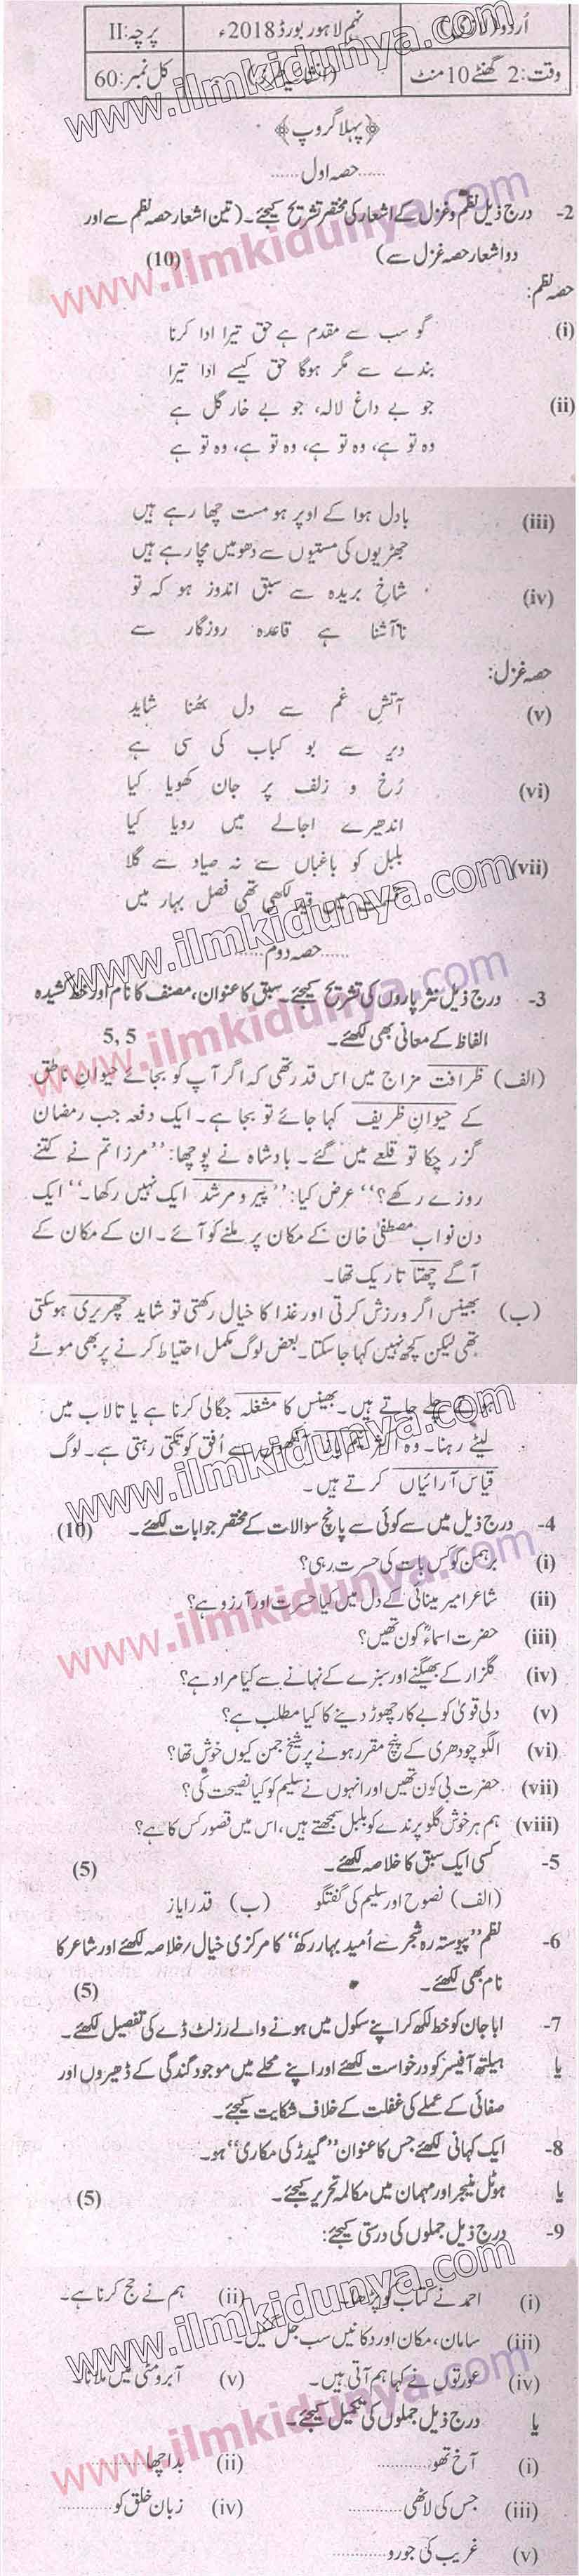 اُردو (لازمی)
نہم لاہور بورڈ 2018ء
پرچہ: II
وقت: 2 گھنٹے 10 منٹ
کل نمبر: 60
www.ilmkidunya.com
﴿پہلا گروپ﴾
......حصہ اول......
2- درج ذیل نظم و غزل کے اشعار کی مختصر تشریح کیجئے۔ (تین اشعار حصہ نظم سے اور
دو اشعار حصہ غزل سے) (10)
www.ilmkidunya.com
حصہ نظم:
(i) گو سب سے مقدم ہے حق تیرا ادا کرنا
بندے سے مگر ہوگا حق کیسے ادا تیرا
(ii) جو بے داغ لالہ، جو بے خار گل ہے
وہ تو ہے، وہ تو ہے، وہ تو ہے، وہ تو ہے
(iii) بادل ہوا کے اوپر ہو مست چھا رہے ہیں
جھڑیوں کی مستیوں سے دھومیں مچا رہے ہیں
(iv) شاخِ بریدہ سے سبق اندوز ہو کہ تو
ناآشنا ہے قاعدہ روزگار سے
حصہ غزل:
(v) آتشِ غم سے دل بھُنا شاید
دیر سے بو کباب کی سی ہے
(vi) رُخ و زلف پر جان کھویا کیا
اندھیرے اجالے میں رویا کیا
(vii) بلبل کو باغباں سے نہ صیاد سے گلا
میں قید لکھی تھی فصل بہار میں
www.ilmkidunya.com
......حصہ دوم......
3- درج ذیل نثر پاروں کی تشریح کیجئے۔ سبق کا عنوان، مصنف کا نام اور خط کشیدہ
الفاظ کے معانی بھی لکھئے۔ 5, 5
www.ilmkidunya.com
(الف) ظرافت مزاج میں اس قدر تھی کہ اگر آپ کو بجائے حیوانِ ناطق
کے حیوانِ ظریف کہا جائے تو بجا ہے۔ ایک دفعہ جب رمضان
گزر چکا تو قلعے میں گئے۔ بادشاہ نے پوچھا: ’’مرزا تم نے کتنے
روزے رکھے؟‘‘ عرض کیا: ’’پیر و مرشد ایک نہیں رکھا۔‘‘ ایک
دن نواب مصطفیٰ خان کے مکان پر ملنے کو آئے۔ ان کے مکان کے
آگے چھتا تاریک تھا۔
(ب) بھینس اگر ورزش کرتی اور غذا کا خیال رکھتی تو شاید چھریری ہو سکتی
تھی لیکن کچھ نہیں کہا جا سکتا۔ بعض لوگ مکمل احتیاط کرنے پر بھی موٹے
ہوتے چلے جاتے ہیں۔ بھینس کا مشغلہ جگالی کرنا ہے یا تالاب میں
لیٹے رہنا۔ وہ اکثر آنکھوں سے اُفق کو تکتی رہتی ہے۔ لوگ
قیاس آرائیاں کرتے ہیں۔
www.ilmkidunya.com
4- درج ذیل میں سے کوئی سے پانچ سوالات کے مختصر جوابات لکھئے۔ (10)
(i) برہمن کو کس بات کی حسرت رہی؟
(ii) شاعر امیر مینائی کے دل میں کیا حسرت اور آرزو ہے؟
www.ilmkidunya.com
(iii) حضرت اسماءؓ کون تھیں؟
(iv) گلزار کے بھیگنے اور سبزے کے نہانے سے کیا مراد ہے؟
(v) دلی قویٰ کو بے کار چھوڑ دینے کا کیا مطلب ہے؟
(vi) الگو چودھری کے پنچ مقرر ہونے پر شیخ جمن کیوں خوش تھا؟
(vii) حضرت بی کون تھیں اور انہوں نے سلیم کو کیا نصیحت کی؟
(viii) ہم ہر خوش گلو پرندے کو بلبل سمجھتے ہیں، اس میں قصور کس کا ہے؟
5- کسی ایک سبق کا خلاصہ لکھئے۔ (5)
(الف) نصوح اور سلیم کی گفتگو (ب) قدر ایاز
6- نظم ’’پیوستہ رہ شجر سے اُمید بہار رکھ‘‘ کا مرکزی خیال / خلاصہ لکھئے اور شاعر کا
نام بھی لکھئے۔ (5)
7- ابا جان کو خط لکھ کر اپنے سکول میں ہونے والے رزلٹ ڈے کی تفصیل لکھئے۔
یا ہیلتھ آفیسر کو درخواست لکھئے اور اپنے محلے میں موجود گندگی کے ڈھیروں اور
صفائی کے عملے کی غفلت کے خلاف شکایت کیجئے۔
8- ایک کہانی لکھئے جس کا عنوان ’’گیدڑ کی مکاری‘‘ ہو۔
یا ہوٹل منیجر اور مہمان میں مکالمہ تحریر کیجئے۔ (5)
9- درج ذیل جملوں کی درستی کیجئے:
(i) احمد نے کتاب کو پڑھا۔ (ii) ہم نے حج کرنا ہے۔
www.ilmkidunya.com
(iii) سامان، مکان اور دکانیں سب جل گئیں۔
(iv) عورتوں نے کہا ہم آتی ہیں۔ (v) آبرو مٹی میں ملانا۔
www.ilmkidunya.com
یا درج ذیل جملوں کی تکمیل کیجئے۔
(i) آخ تھو............ (ii) بد اچھا............
(iii) جس کی لاٹھی............ (iv) زبان خلق کو............
(v) غریب کی جورو............